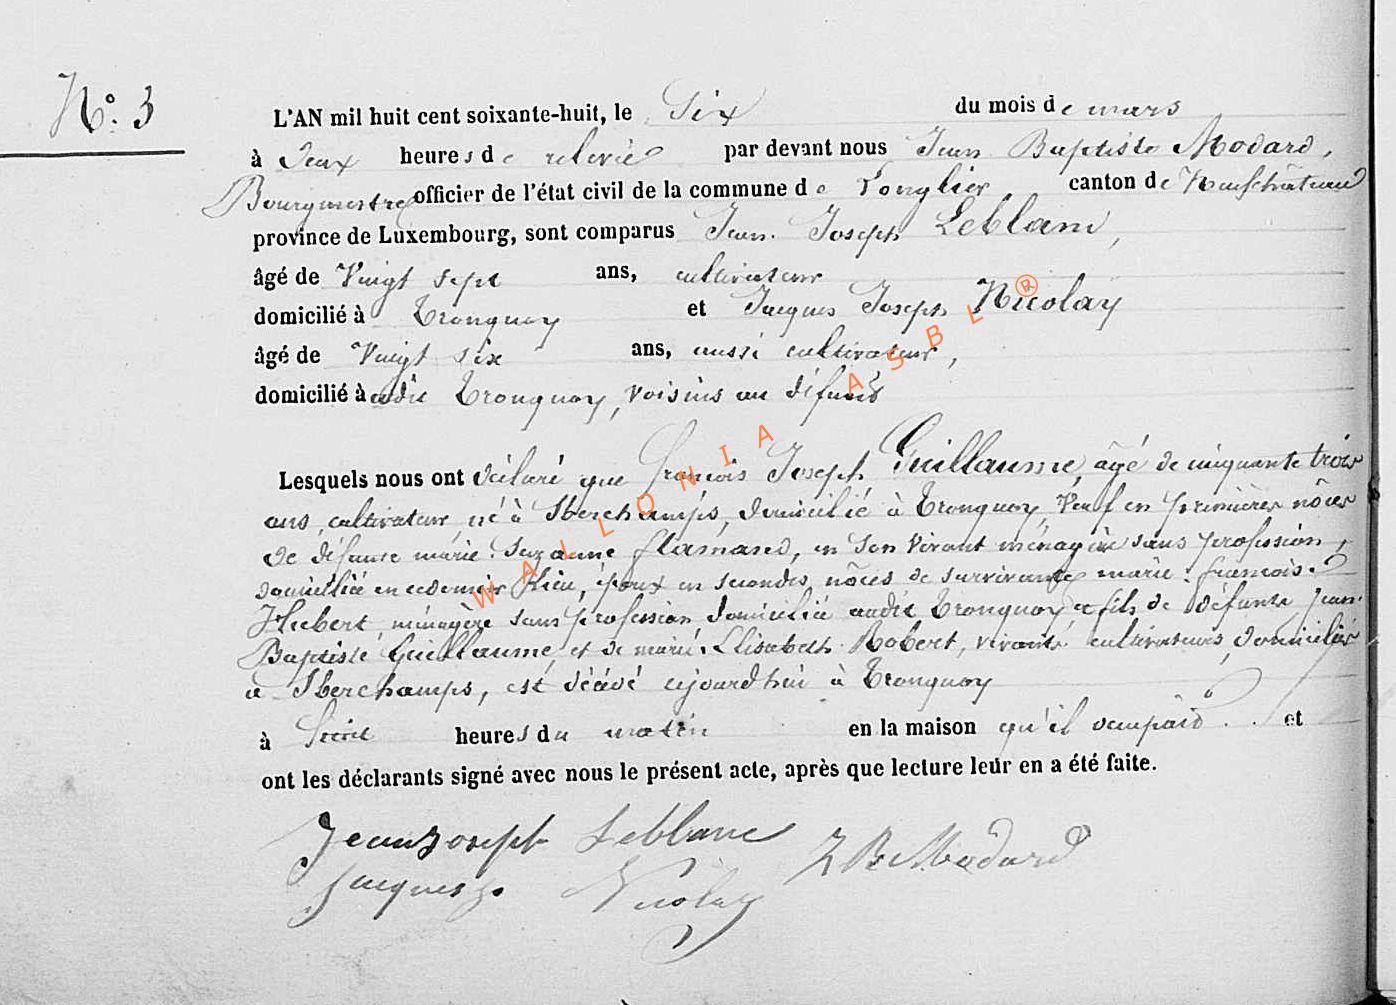 N.° 3
L'AN mil huit cent soixante-huit, le Six du mois de mars
à Deux heures de relevée par devant nous Jean Baptiste Modard,
Bourgmestre officier de l'état civil de la commune de Longlier canton de Neufchâteau
province de Luxembourg, sont comparus Jean Joseph Leblanc,
âgé de Vingt sept ans, cultivateur
domicilié à Tronquoy et Jacques Joseph Nicolay
âgé de Vingt six ans, aussi cultivateur,
domicilié à audit Tronquoy, voisins au défunt
Lesquels nous ont déclaré que François Joseph Guillaume, âgé de cinquante trois
ans, cultivateur né à Sberchamps, domicilié à Tronquoy, Veuf en premières nôces
de défunte marie Suzanne flamand, en son vivant ménagère sans profession,
domiciliée en ce dernier lieu, époux en secondes nôces de survivante marie françois
Hubert, ménagère sans profession domiciliée audit Tronquoy et fils de défunts Jean
Baptiste Guillaume, et de marie Elisabeth Robert, vivants cultivateurs, domiciliés
à Sberchamps, est décédé aujourd'hui à Tronquoy
à heures du matin en la maison qu'il occupait et
ont les déclarants signé avec nous le présent acte, après que lecture leur en a été faite.
Jean Joseph Leblanc J B Modard
Jacques Jh Nicolay
WALLONIA ASBL ®